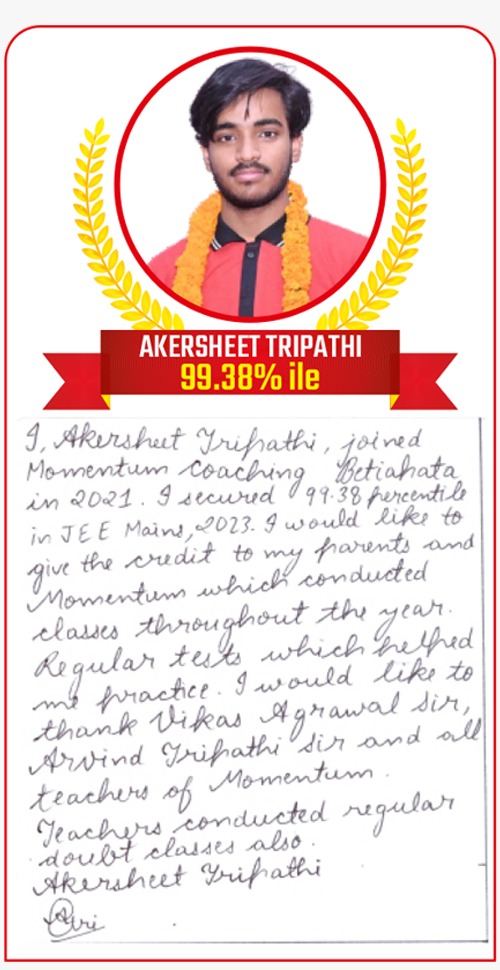 AKERSHEET TRIPATHI
99.38% ile
I, Akersheet Tripathi, joined
Momentum Coaching Betiahata
in 2021. I secured 99.38 percentile
in JEE Mains, 2023. I would like to
give the credit to my parents and
Momentum which conducted
classes throughout the year.
Regular tests which helped
me practice. I would like to
thank Vikas Agrawal sir,
Arvind Tripathi sir and all
teachers of Momentum.
Teachers conducted regular
doubt classes also.
Akersheet Tripathi